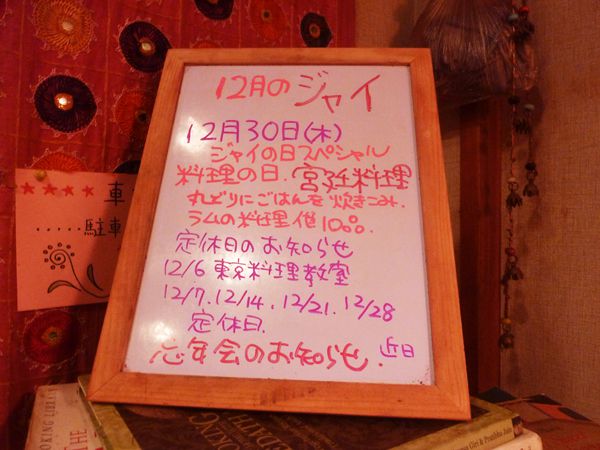 12月のジャイ
12月30日(木)
ジャイの日スペシャル
料理の日.宮廷料理
丸どりにごはんを炊きこみ.
ラムの料理他
定休日のお知らせ
12/6 東京料理教室
12/7.12/14.12/21.12/28
定休日.
忘年会のお知らせ. 近日
★★★★ 車
・・・・・駐車